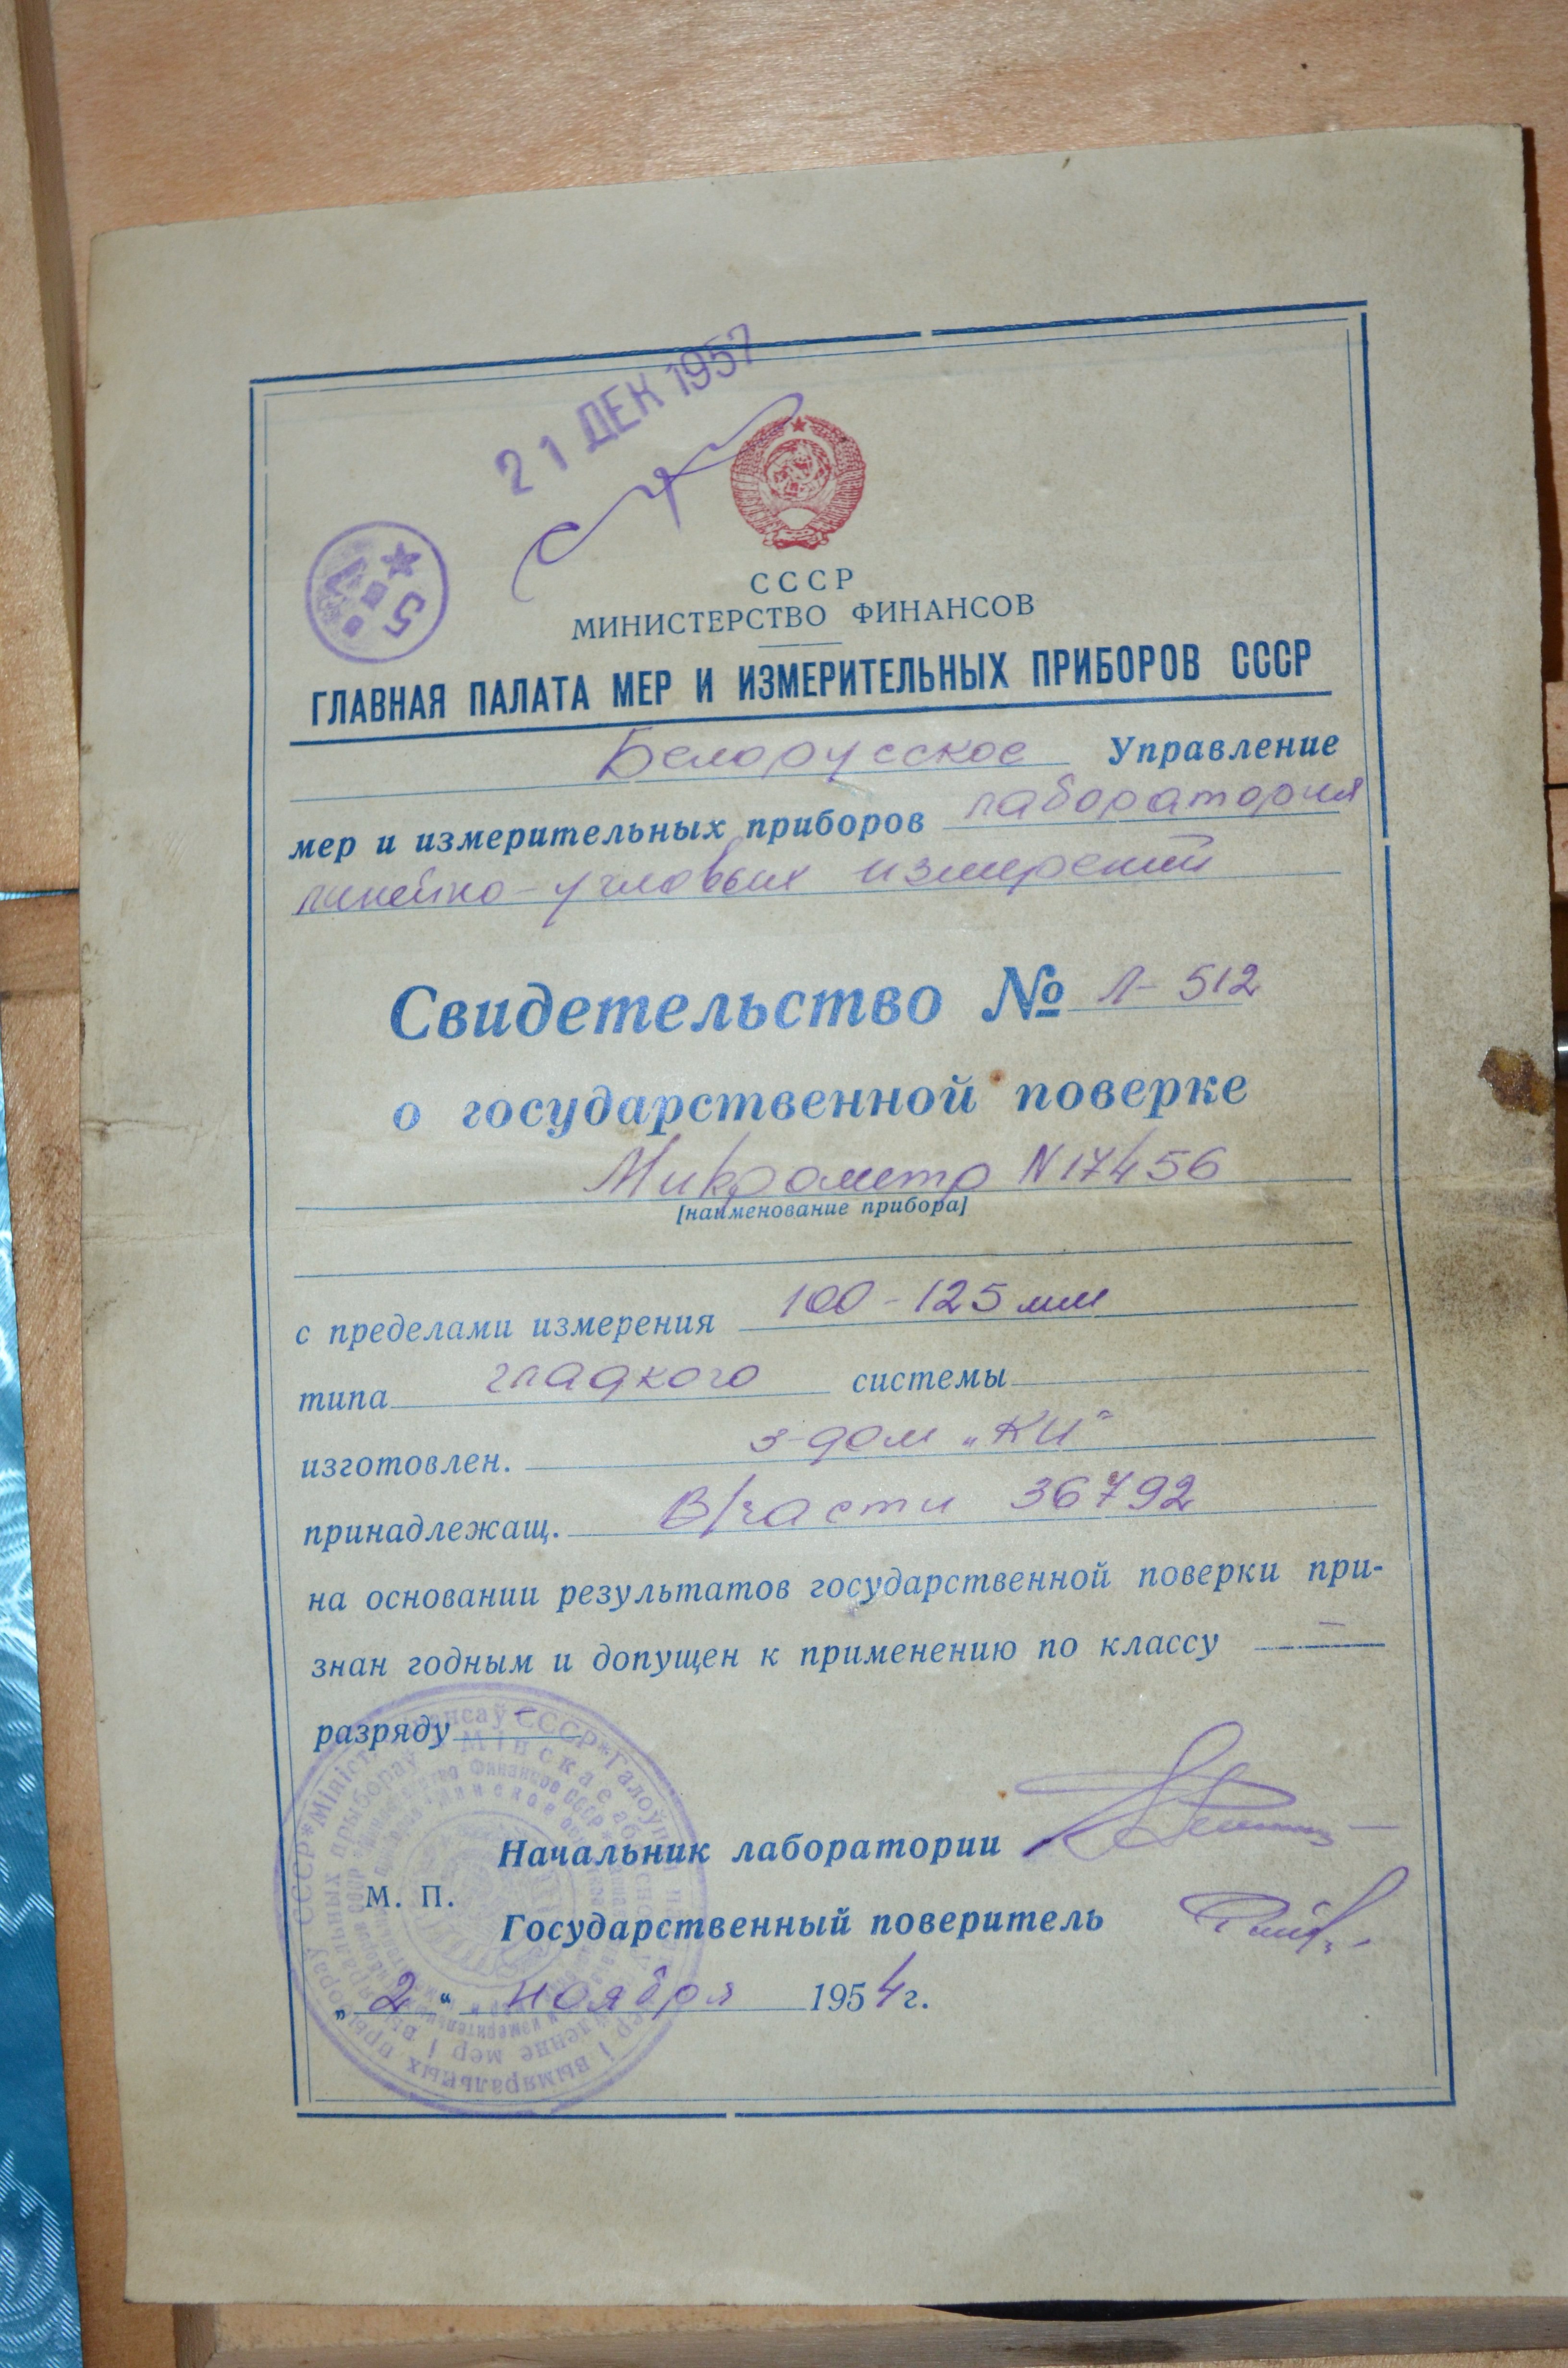 21 ДЕК 1957
5 7
СССР
МИНИСТЕРСТВО ФИНАНСОВ
ГЛАВНАЯ ПАЛАТА МЕР И ИЗМЕРИТЕЛЬНЫХ ПРИБОРОВ СССР
Белорусское Управление
мер и измерительных приборов лаборатория
линейно-угловых измерений
Свидетельство № Л-512
о государственной поверке
Микрометр N 17456
[наименование прибора]
с пределами измерения 100-125 мм
типа гладкого системы
изготовлен. з-дом „КИ"
принадлежащ. В/части 36792
на основании результатов государственной поверки при-
знан годным и допущен к применению по классу —
разряду —
Начальник лаборатории
М. П.
Государственный поверитель
„2" ноября 1954 г.